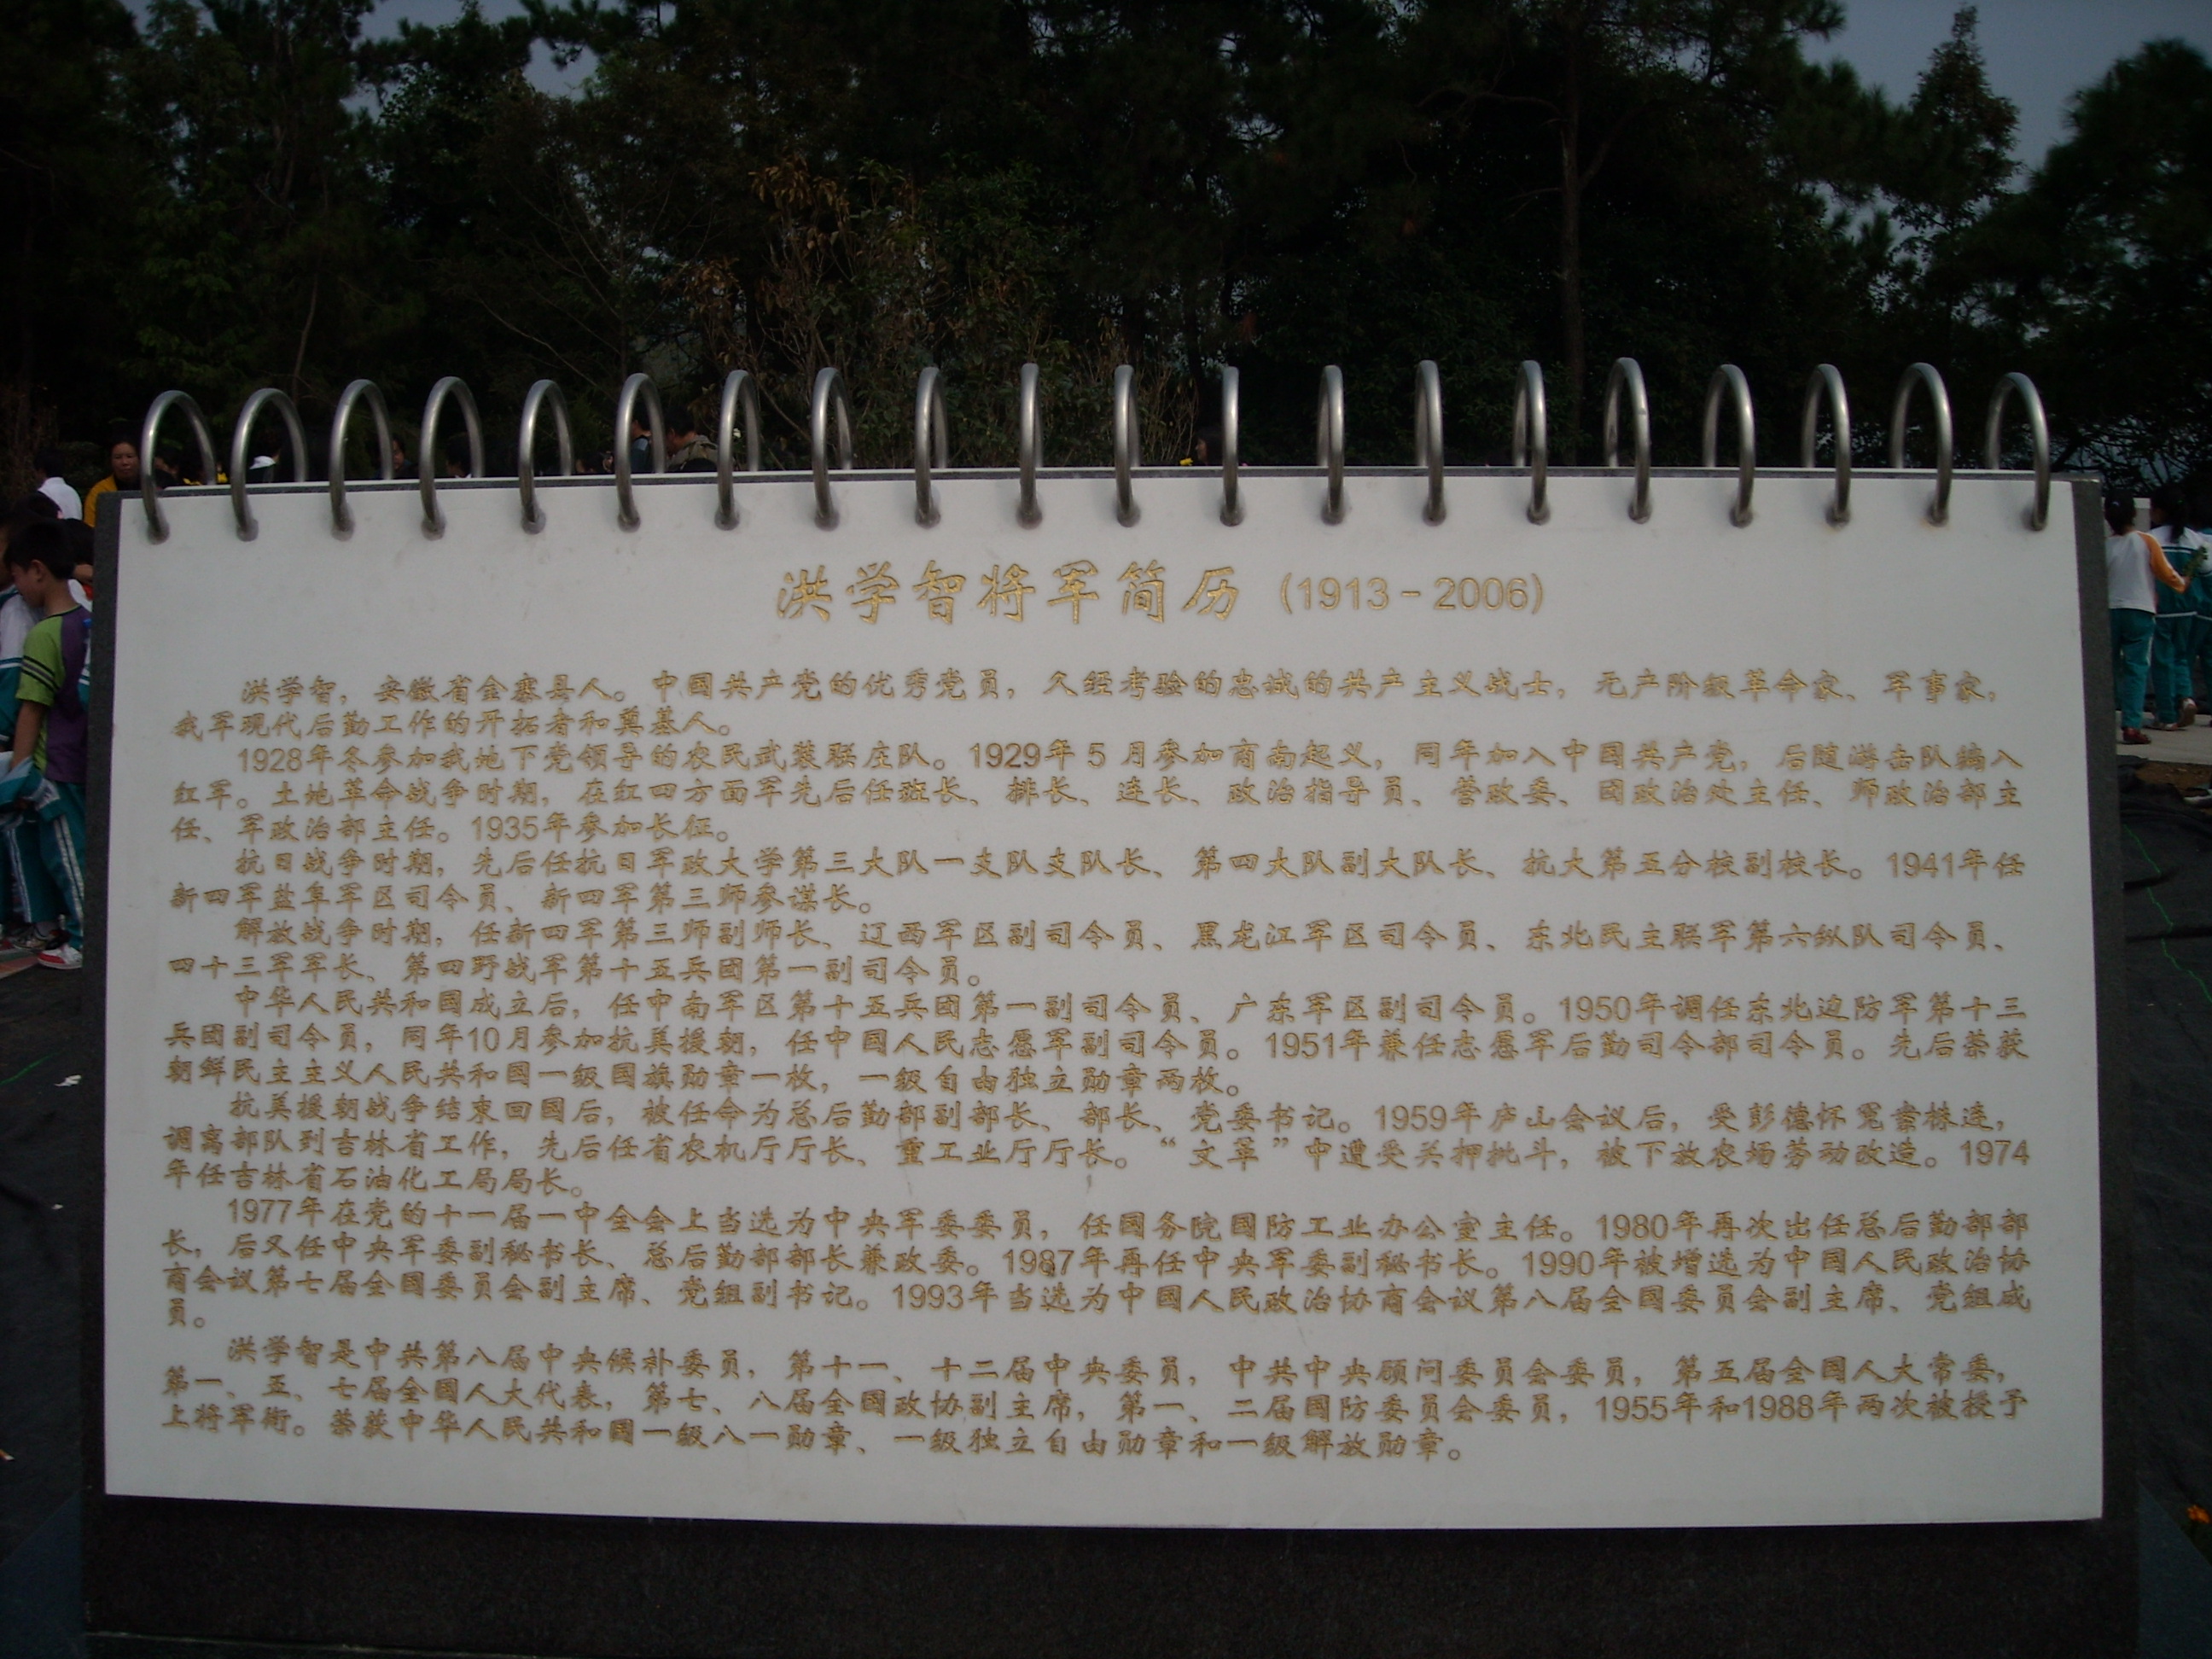 洪学智将军简历（1913－2006）
洪学智，安徽省金寨县人。中国共产党的优秀党员，久经考验的忠诚的共产主义战士，无产阶级革命家、军事家，
我军现代后勤工作的开拓者和奠基人。
1928年冬参加我地下党领导的农民武装联庄队。1929年5月参加商南起义，同年加入中国共产党，后随游击队编入
红军。土地革命战争时期，在红四方面军先后任班长、排长、连长、政治指导员、营政委、团政治处主任、师政治部主
任、军政治部主任。1935年参加长征。
抗日战争时期，先后任抗日军政大学第三大队一支队支队长、第四大队副大队长、抗大第五分校副校长。1941年任
新四军盐阜军区司令员、新四军第三师参谋长。
解放战争时期，任新四军第三师副师长、辽西军区副司令员、黑龙江军区司令员、东北民主联军第六纵队司令员、
四十三军军长、第四野战军第十五兵团第一副司令员。
中华人民共和国成立后，任中南军区第十五兵团第一副司令员、广东军区副司令员。1950年调任东北边防军第十三
兵团副司令员，同年10月参加抗美援朝，任中国人民志愿军副司令员。1951年兼任志愿军后勤司令部司令员。先后荣获
朝鲜民主主义人民共和国一级国旗勋章一枚，一级自由独立勋章两枚。
抗美援朝战争结束回国后，被任命为总后勤部副部长、部长、党委书记。1959年庐山会议后，受彭德怀冤案株连，
调离部队到吉林省工作，先后任省农机厅厅长、重工业厅厅长。“文革”中遭受关押批斗，被下放农场劳动改造。1974
年任吉林省石油化工局局长。
1977年在党的十一届一中全会上当选为中央军委委员，任国务院国防工业办公室主任。1980年再次出任总后勤部部
长，后又任中央军委副秘书长、总后勤部部长兼政委。1987年再任中央军委副秘书长。1990年被增选为中国人民政治协
商会议第七届全国委员会副主席、党组副书记。1993年当选为中国人民政治协商会议第八届全国委员会副主席、党组成
员。
洪学智是中共第八届中央候补委员，第十一、十二届中央委员，中共中央顾问委员会委员，第五届全国人大常委，
第一、五、七届全国人大代表，第七、八届全国政协副主席，第一、二届国防委员会委员，1955年和1988年两次被授予
上将军衔。荣获中华人民共和国一级八一勋章、一级独立自由勋章和一级解放勋章。